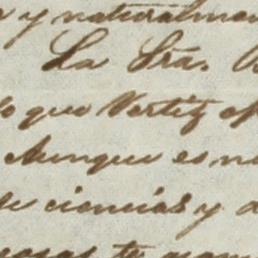 y naturalmen
La Sra.
lo que Vertiz
Aunque es
de ciencias y
cosas te